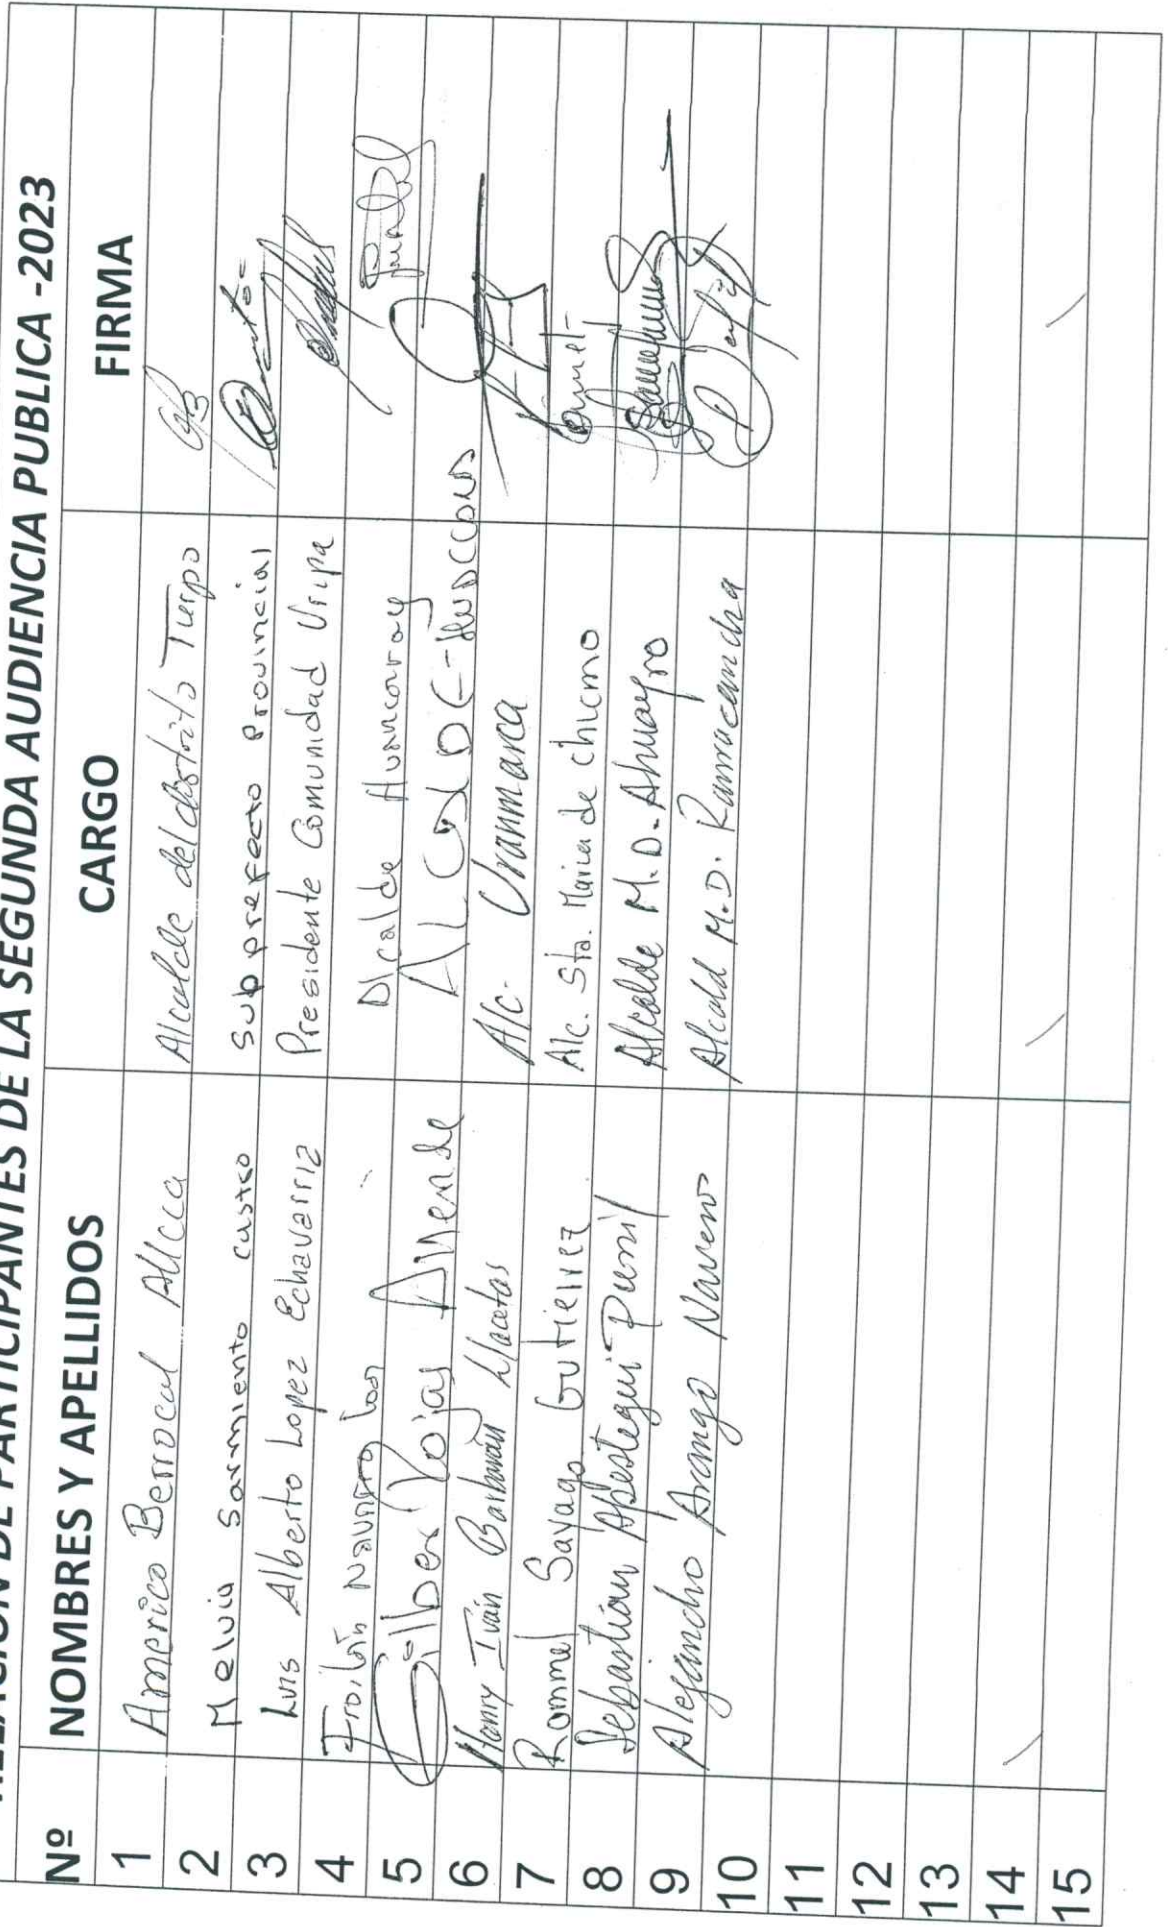 RELACION DE PARTICIPANTES DE LA SEGUNDA AUDIENCIA PUBLICA -2023
Nº NOMBRES Y APELLIDOS CARGO FIRMA
1 Americo Berrocal Allcca Alcalde del distrito Turpo
2 Melvin Sarmiento Castro Subprefecto Provincial
3 Luis Alberto Lopez Echavarria Presidente Comunidad Uripa
4 Froilán Navarro Alcalde Huancaray
5 Silber Rojas Allende ALCALDE - Huaccana
6 Harry Iván Barbarán Alc. Uranmarca
7 Rommel Sayago Gutierrez Alc. Sta. Maria de chicmo
8 Sebastián Apestegui Alcalde M.D. Ahuayro
9 Alejandro Arango Navero Alcald M.D. Rannracancha
10
11
12
13
14
15